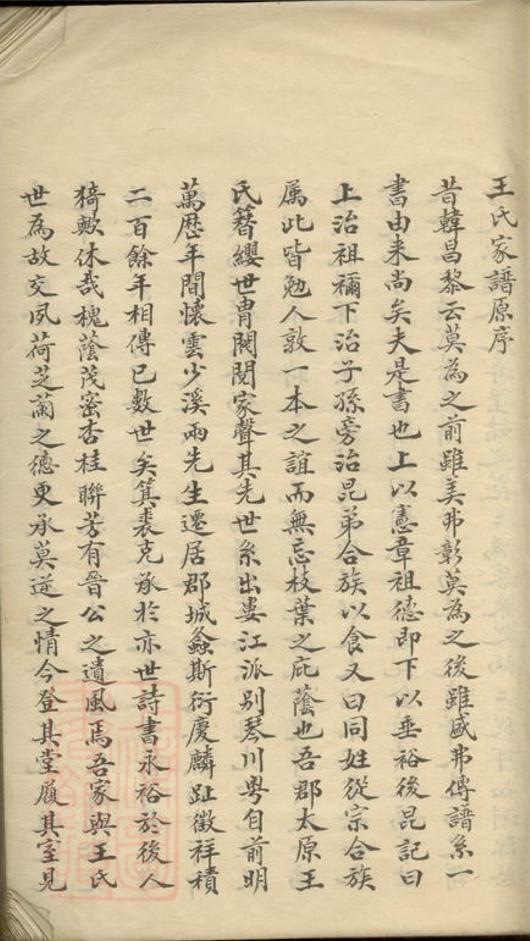 王氏家譜原序
昔韓昌黎云莫為之前雖美弗彰莫為之後雖盛弗傳譜系一
書由来尚矣夫是書也上以憲章祖德即下以垂裕後昆記曰
上治祖禰下治子孫旁治昆弟合族以食又曰同姓從宗合族
属此皆勉人敦一本之誼而無忘枝葉之庇蔭也吾郡太原王
氏簪纓世胄閥閱家聲其先世系出婁江派別琴川粵自前明
萬歷年間懷雲少溪兩先生遷居郡城螽斯衍慶麟趾徵祥積
二百餘年相傳已数世矣箕裘克承於亦世詩書永裕於後人
猗歟休哉槐蔭茂密杏桂聯芳有晉公之遺風焉吾家與王氏
世為故交夙荷芝蘭之德更承莫逆之情今登其堂履其室見